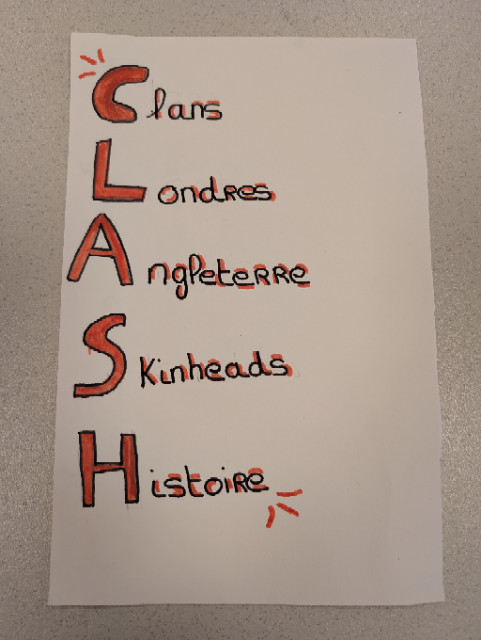 Clans
Londres
Angleterre
Skinheads
Histoire